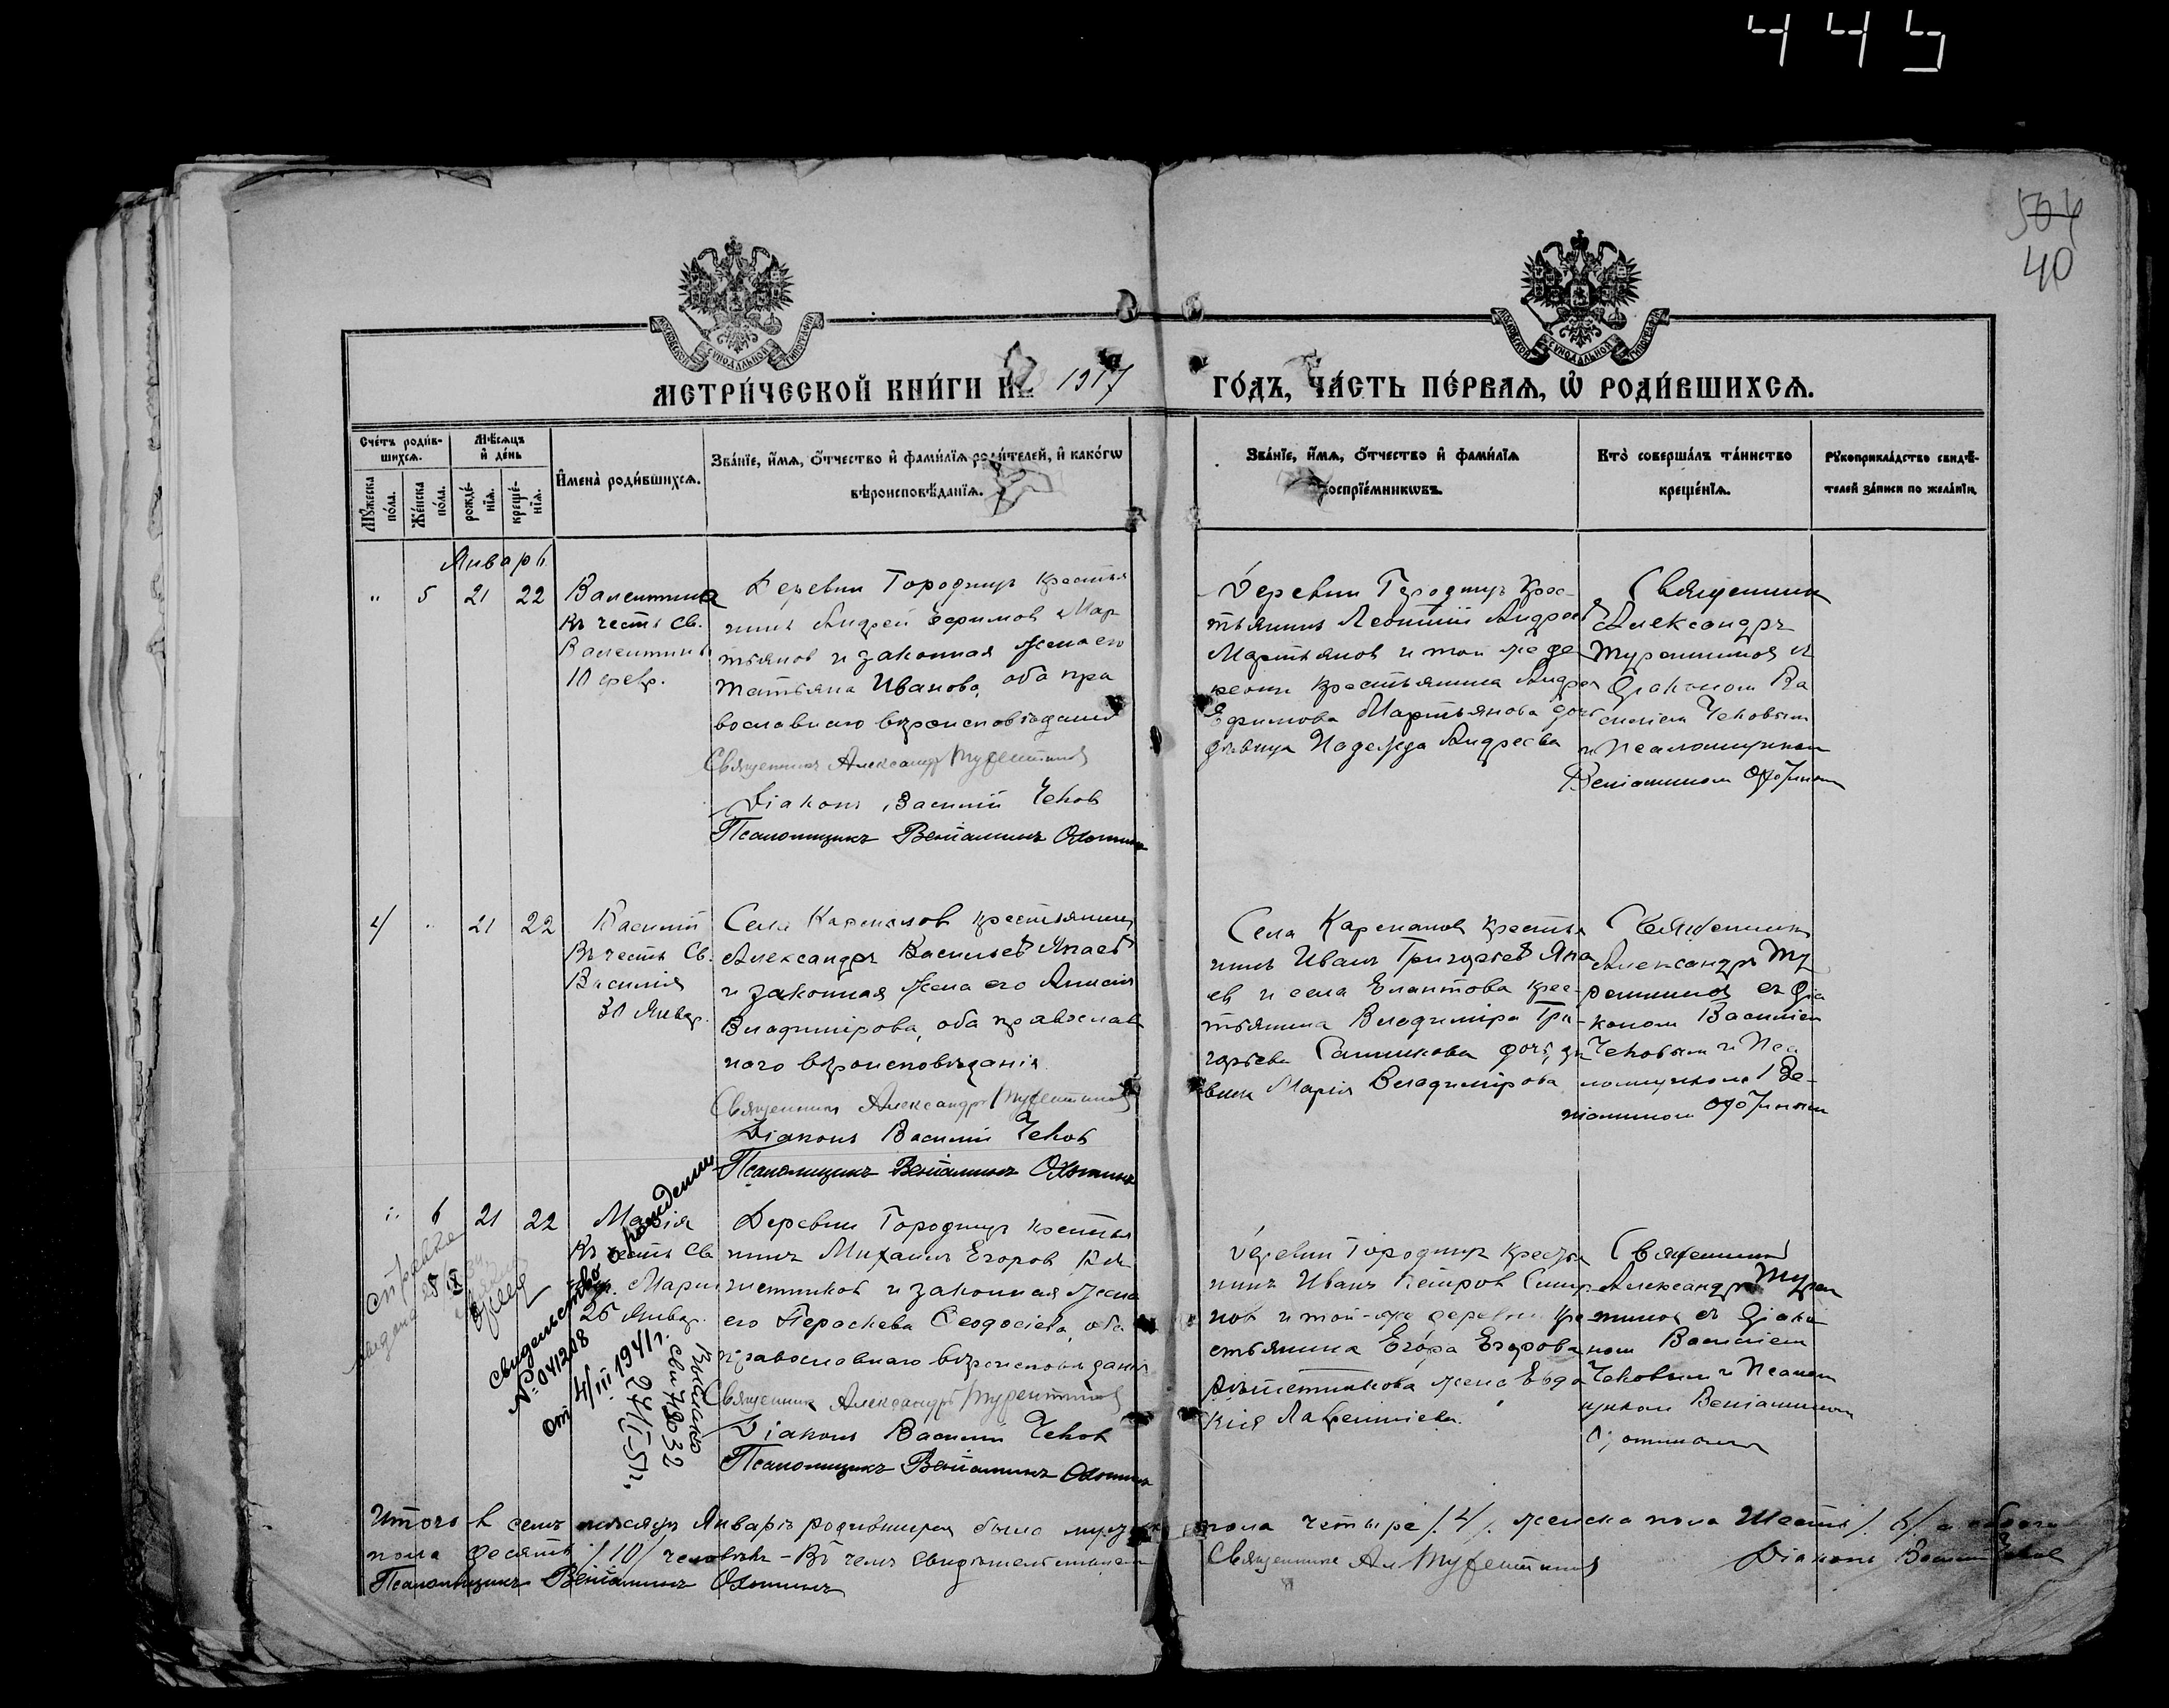 445
504
40
МОСКОВСКОЙ СѴНОДАЛЬНОЙ ТИПОГРАФІИ
МОСКОВСКОЙ СѴНОДАЛЬНОЙ ТИПОГРАФІИ
МЕТРИ́ЧЕСКОЙ КНИ́ГИ НА 1917
ГО́ДЪ, ЧА́СТЬ ПЕ́РВАѦ, Ѡ РОДИ́ВШИХСѦ.
Сче́тъ роди́в-
шихсѧ.
Мꙋ́жеска по́ла.
Же́нска по́ла.
Мѣ́сѧцъ
и де́нь
рожде́-
нїѧ.
креще́-
нїѧ.
И҆мена̀ роди́вшихсѧ.
Зва́нїе, и҆́мѧ, ѻ҆́тчество и҆ фами́лїѧ роди́телей, и҆ како́гѡ
вѣроисповѣ́данїѧ.
Зва́нїе, и҆́мѧ, ѻ҆́тчество и҆ фами́лїѧ
воспрїе́мникѡвъ.
Кто̀ соверша́лъ та́инство
креще́нїѧ.
Рꙋкоприкла́дство свидѣ́-
телей за́писи по жела́нїю.
Январь
" 5 21 22
Валентина
Въ честь Св.
Валентины
10 февр.
Деревни Городищъ крестья
нинъ Андрей Ефимовъ Мар
тьяновъ и законная жена его
Татьяна Иванова, оба пра
вославного вѣроисповѣданія
Священникъ Александръ Турентиновъ
Діаконъ Василій Чеховъ
Псаломщикъ Веніаминъ Охотинъ
Деревни Городищъ Крес-
тьянинъ Леонтій Андреевъ
Мартьяновъ и той же де
ревни крестьянина Андрея
Ефимова Мартьянова дочь
дѣвица Надежда Андреева
Священникъ
Александръ
Турентиновъ съ
Діакономъ Ва
силіемъ Чеховымъ
и Псаломщикомъ
Веніаминомъ Охотинымъ
4 " 21 22
Василій
Въ честь Св.
Василія
30 Январ.
Села крестьянинъ
Александръ Васильевъ Япаевъ
и законная жена его
Владимірова, оба православ
ного вѣроисповѣданія
Священникъ Александръ Турентиновъ
Діаконъ Василій Чеховъ
Псаломщикъ Веніаминъ Охотинъ
Села крестья
нинъ Иванъ Григорьевъ Япа
евъ и села Елантова крес-
тьянина Владиміра Гри-
горьева дочь дѣ
вица Марія Владимірова
Священникъ
Александръ Ту
рентиновъ съ Діа
кономъ Василіемъ
Чеховымъ и Пса
ломщикомъ Ве-
ніаминомъ Охотинымъ
" 6 21 22
Марія
Въ честь Св.
Маріи
26 Январ.
Деревни Городищъ крестья
нинъ Михаилъ Егоровъ
и законная жена
его Параскева Ѳеодосіева, оба
православнаго вѣроисповѣданія
Священникъ Александръ Турентиновъ
Діаконъ Василій Чеховъ
Псаломщикъ Веніаминъ Охотинъ
Деревни Городищъ Крестья
нинъ Иванъ Петровъ Смир
новъ и той-же деревни кре
стьянина Егора Егорова
жена Евдо
кія Лаврентіева.
Священникъ
Александръ Турен
тиновъ съ Діако
номъ Василіемъ
Чеховымъ и Псалом
щикомъ Веніаминомъ
Охотинымъ
Справка
выдана
Свидетельство о рождении
№ 041208
от 4/III 1941 г.
24/I-51 г.
Итого въ семъ мѣсяцѣ Январѣ родившихся было мужеска
пола четыре /4/. женска пола Шесть /6/ а обоего
пола десять /10/ человѣкъ - Въ чемъ свидѣтельствуемъ
Священникъ Ал Турентиновъ
Діаконъ Василій Чеховъ
Псаломщикъ Веніаминъ Охотинъ